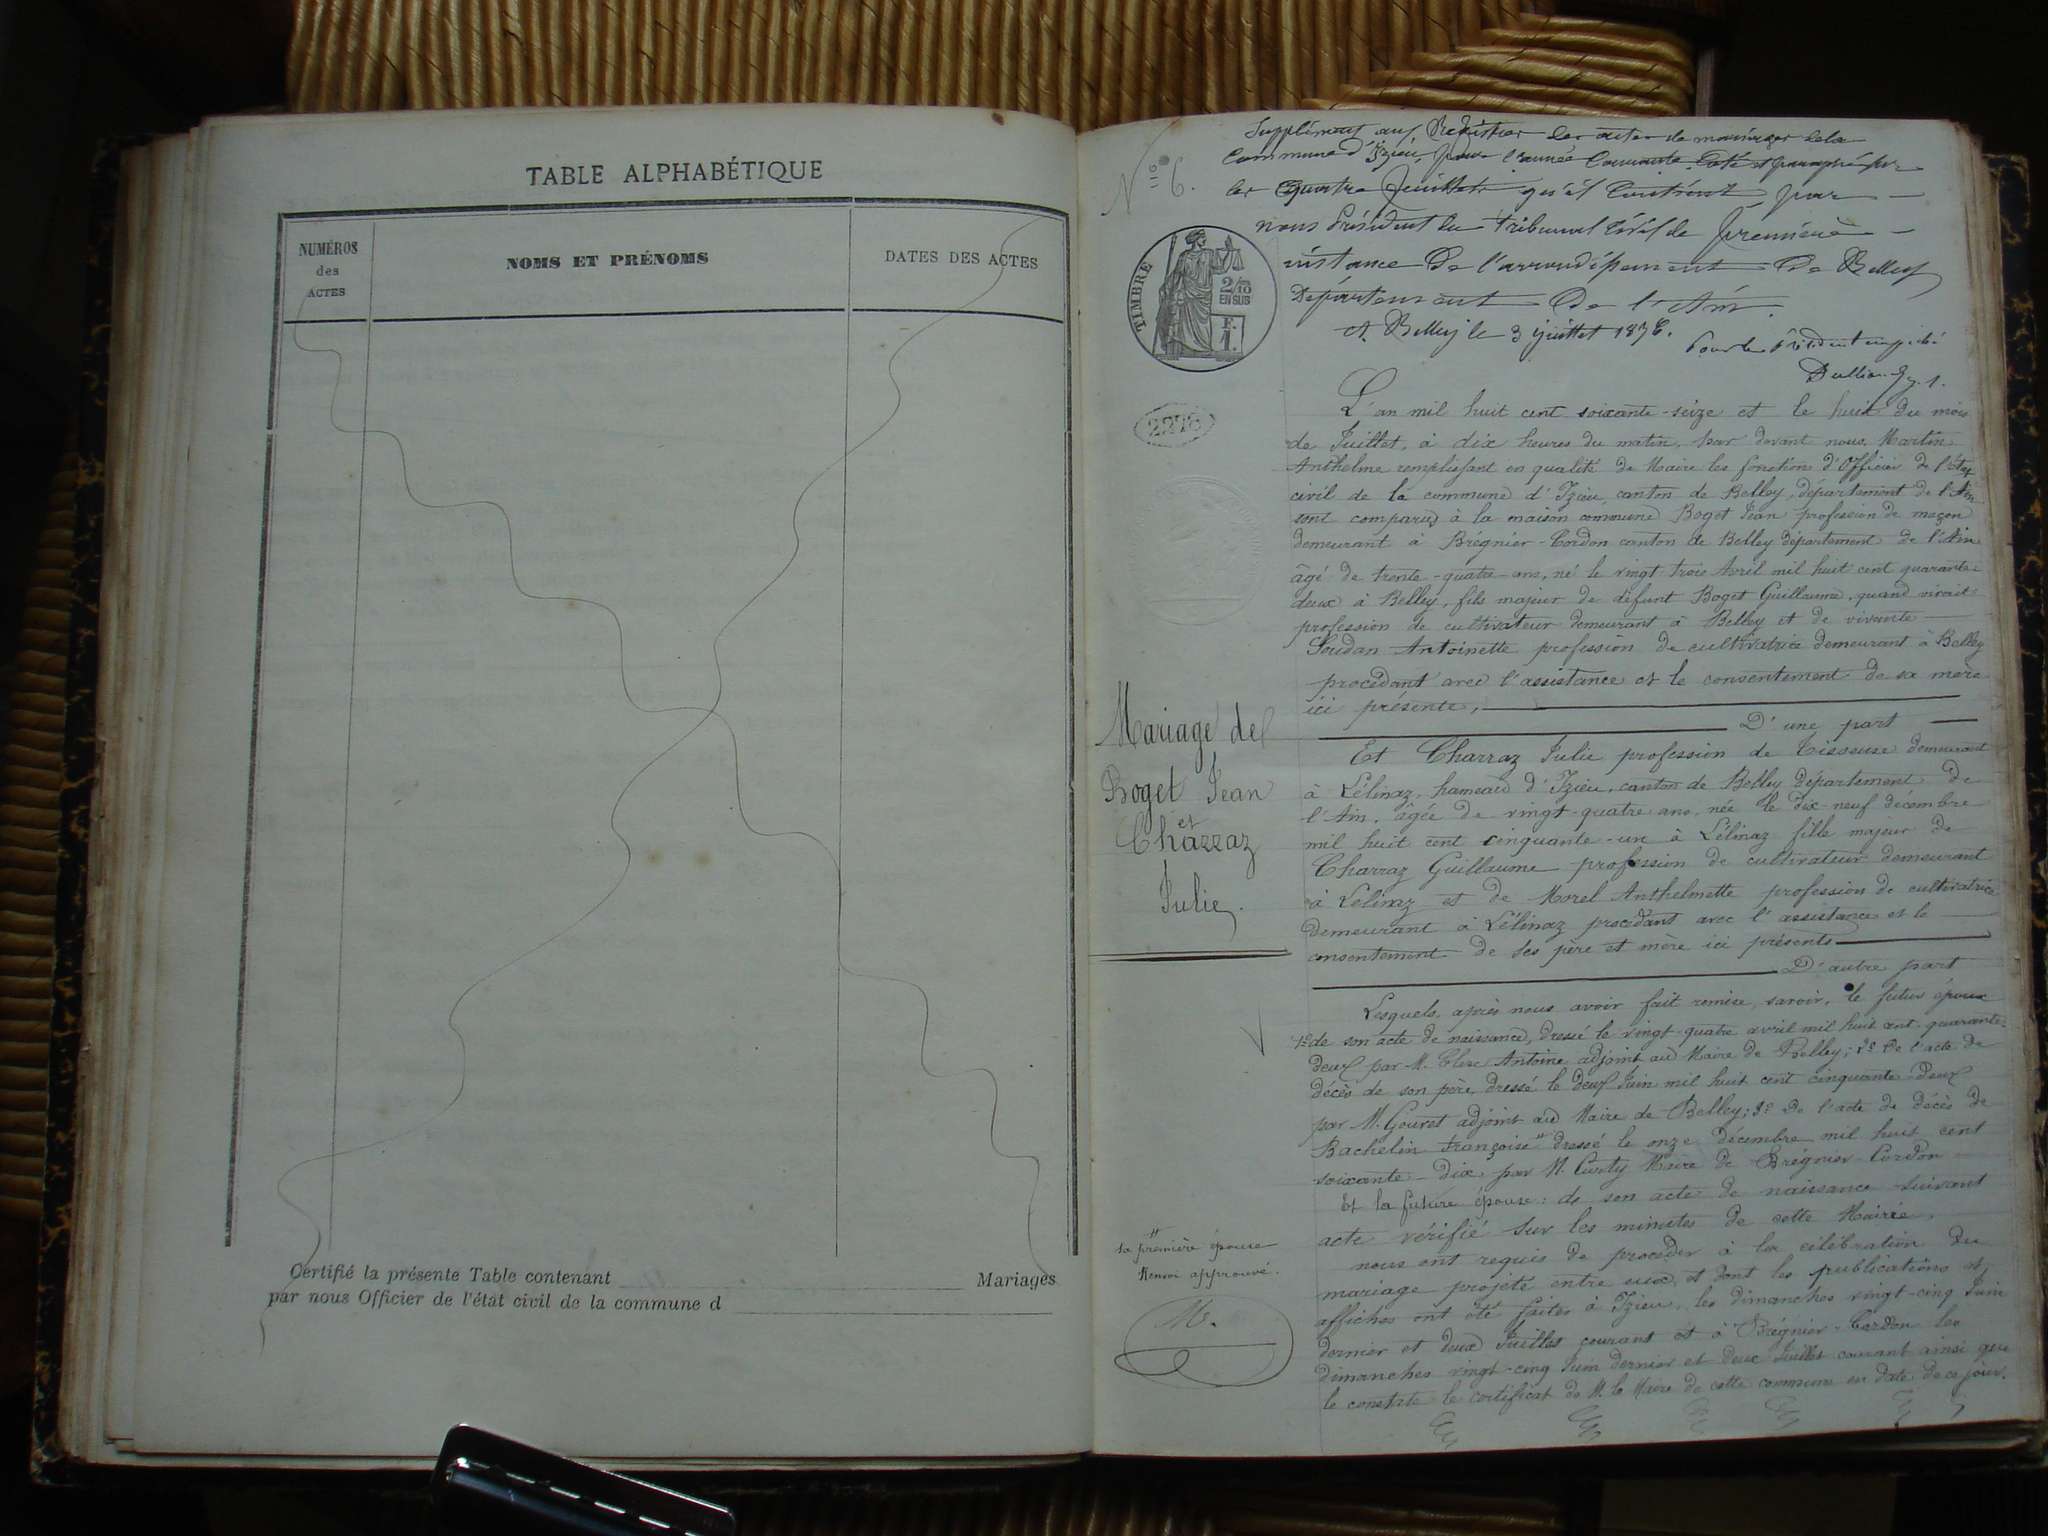 TABLE ALPHABÉTIQUE
NUMÉROS
des
ACTES
NOMS ET PRÉNOMS
DATES DES ACTES
Certifié la présente Table contenant Mariages
par nous Officier de l'état civil de la commune d
Supplément aux Registres des actes de mariages de la
commune d'Izieu, pour l'année courante. Coté et paraphé par
les quatre feuillets qu'il contient par
nous Président du tribunal civil de première
instance de l'arrondissement de Belley
Département de l'Ain.
A Belley le 3 juillet 1876.
Pour le Président empêché
N° 6.
TIMBRE
2/10
EN SUS
F.
1.
2276
L'an mil huit cent soixante-seize et le huit du mois
de Juillet, à dix heures du matin, par devant nous Martin
Anthelme remplissant en qualité de Maire les fonctions d'Officier de l'état
civil de la commune d'Izieu, canton de Belley, département de l'Ain
sont comparus à la maison commune Boget Jean profession de maçon
demeurant à Brégnier-Cordon canton de Belley département de l'Ain
âgé de trente-quatre ans, né le vingt trois Avril mil huit cent quarante-
deux à Belley, fils majeur de défunt Boget Guillaume, quand vivait
profession de cultivateur demeurant à Belley et de vivante
Goudan Antoinette profession de cultivatrice demeurant à Belley
procédant avec l'assistance et le consentement de sa mère
ici présente,
D'une part
Mariage de
Boget Jean
et
Charraz
Julie.
Et Charraz Julie profession de Tisseuse demeurant
à Lélinaz, hameau d'Izieu, canton de Belley département de
l'Ain, âgée de vingt-quatre ans, née le dix-neuf décembre
mil huit cent cinquante-un à Lélinaz fille majeur de
Charraz Guillaume profession de cultivateur demeurant
à Lélinaz et de Morel Anthelmette profession de cultivatrice
demeurant à Lélinaz procédant avec l'assistance et le
consentement de ses père et mère ici présents
D'autre part
Lesquels, après nous avoir fait remise, savoir, le futur époux
1° de son acte de naissance, dressé le vingt-quatre avril mil huit cent quarante-
deux par M. Clerc Antoine adjoint au Maire de Belley; 2° De l'acte de
décès de son père, dressé le deux Juin mil huit cent cinquante-deux
par M. Gouret adjoint au Maire de Belley; 3° De l'acte de décès de
Bachelin Françoise " dressé le onze décembre mil huit cent
soixante-dix par M. Curty Maire de Brégnier-Cordon
Et la future épouse: de son acte de naissance suivant
acte vérifié sur les minutes de cette Mairie.
nous ont requis de procéder à la célébration du
mariage projeté entre eux et dont les publications et
affiches ont été faites à Izieu, les dimanches vingt-cinq Juin
dernier et deux Juillet courant et à Brégnier-Cordon les
dimanches vingt-cinq Juin dernier et deux Juillet courant ainsi que
le constate le certificat de M. le Maire de cette commune en date de ce jour.
"
sa première épouse
Renvoi approuvé.
M.